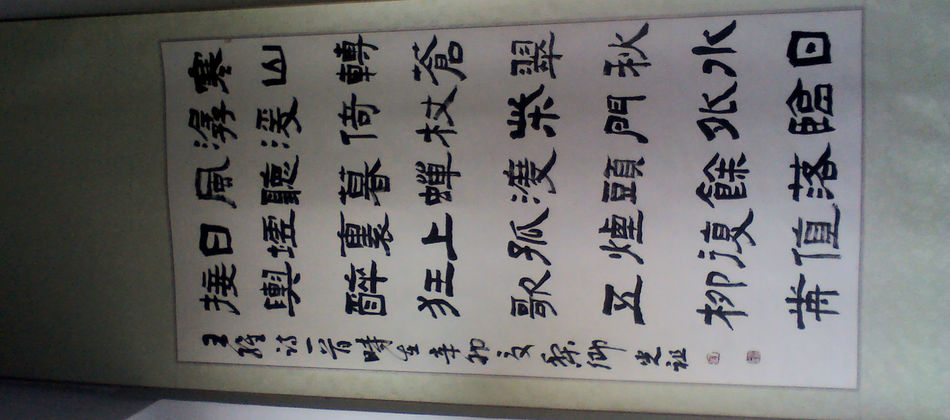 寒山轉蒼翠秋水日
潺湲倚杖柴門外臨
風聽暮蟬渡頭餘落
日墟裏上孤煙復值
接輿醉狂歌五柳前
王維詩一首時在辛卯夏